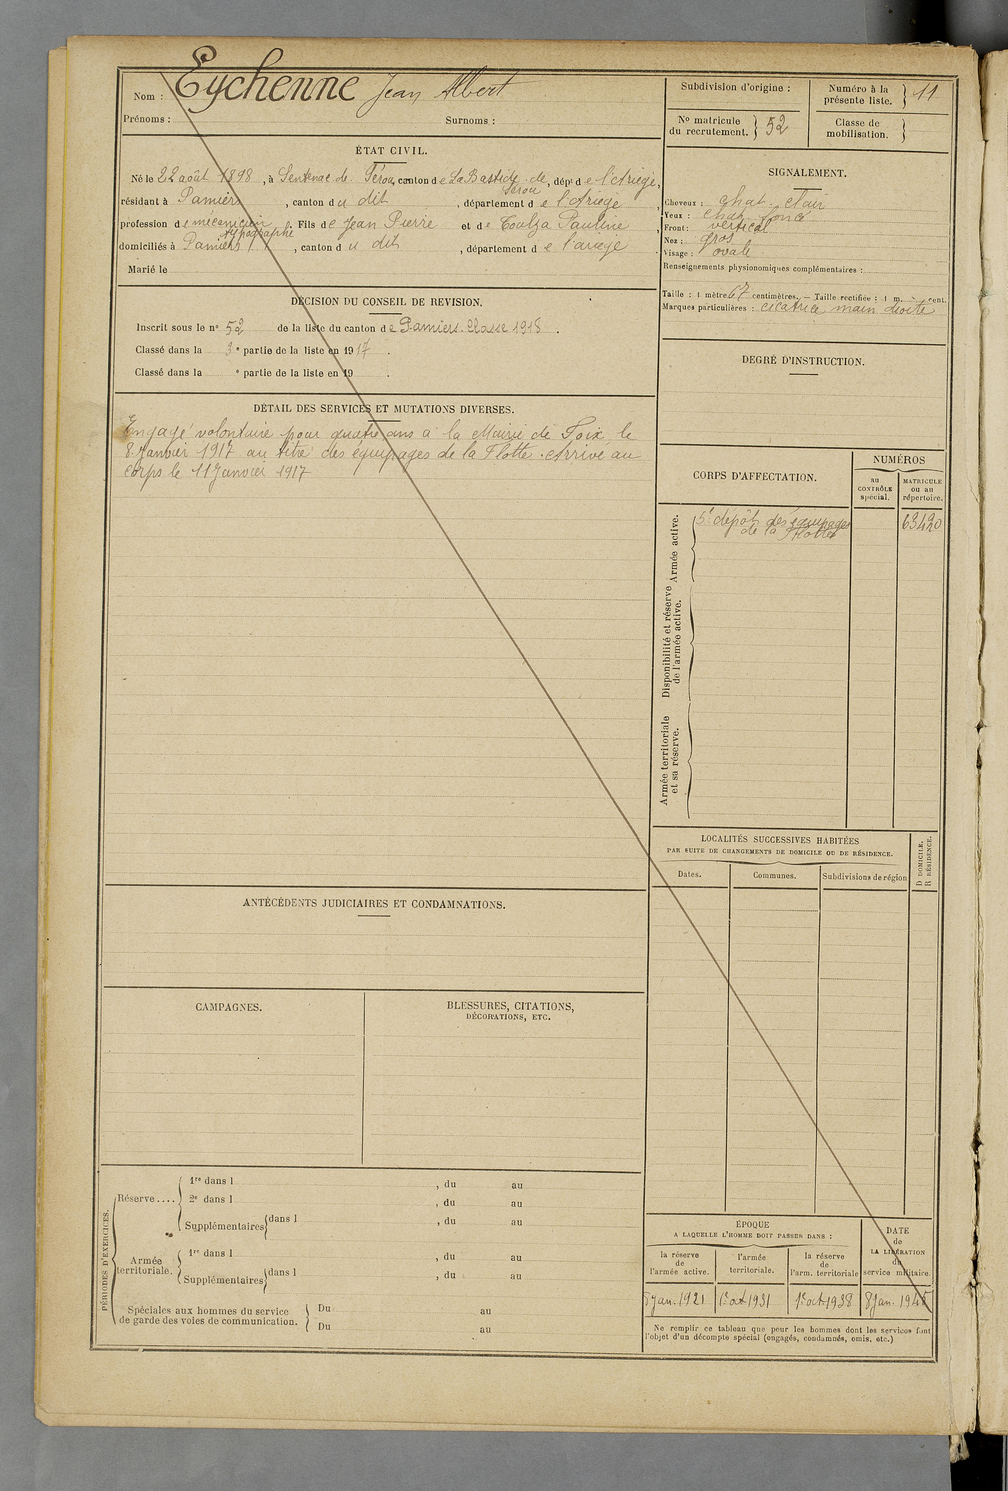 Nom : Eychenne Jean Albert
Prénoms : Surnoms :
Subdivision d'origine :
Numéro à la présente liste. } 11
No matricule du recrutement. } 52
Classe de mobilisation. }
ÉTAT CIVIL.
Né le 22 août 1898, à Sentenac de Sérou, canton de La Bastide de Sérou, dépt de l'Ariège,
résidant à Pamiers, canton du dit, département de l'Ariège,
profession de mécanicien typographe. Fils de Jean Pierre et de Toulza Pauline,
domiciliés à Pamiers, canton du dit, département de l'ariège
Marié le
SIGNALEMENT.
Cheveux : chat. clair
Yeux : chat. foncé
Front : vertical
Nez : gros
Visage : ovale
Renseignements physionomiques complémentaires :
Taille : 1 mètre 67 centimètres. — Taille rectifiée : 1 m. cent.
Marques particulières : cicatrice main droite
DÉCISION DU CONSEIL DE REVISION.
Inscrit sous le n° 52 de la liste du canton de Pamiers. Classe 1918.
Classé dans la 3e partie de la liste en 1917.
Classé dans la e partie de la liste en 19 .
DEGRÉ D'INSTRUCTION.
DÉTAIL DES SERVICES ET MUTATIONS DIVERSES.
Engagé volontaire pour quatre ans à la Mairie de Foix, le
8 Janvier 1917 au titre des équipages de la Flotte. Arrivé au
corps le 11 Janvier 1917
CORPS D'AFFECTATION.
NUMÉROS
au CONTRÔLE spécial.
MATRICULE ou au répertoire.
Armée active.
5e dépôt des équipages
de la Flotte
63420
Disponibilité et réserve de l'armée active.
Armée territoriale et sa réserve.
LOCALITÉS SUCCESSIVES HABITÉES
PAR SUITE DE CHANGEMENTS DE DOMICILE OU DE RÉSIDENCE.
Dates. Communes. Subdivisions de région
D DOMICILE.
R RÉSIDENCE.
ANTÉCÉDENTS JUDICIAIRES ET CONDAMNATIONS.
CAMPAGNES.
BLESSURES, CITATIONS,
DÉCORATIONS, ETC.
PÉRIODES D'EXERCICES.
Réserve....
1re dans l , du au
2e dans l , du au
Supplémentaires { dans l , du au
Armée territoriale.
1re dans l , du au
Supplémentaires { dans l , du au
Spéciales aux hommes du service
de garde des voies de communication.
Du au
Du au
ÉPOQUE
A LAQUELLE L'HOMME DOIT PASSER DANS :
la réserve de l'armée active.
l'armée territoriale.
la réserve de l'arm. territoriale
DATE
de
LA LIBÉRATION
du
service militaire.
8 jan. 1921 1er oct 1931 1er oct 1938 8 Jan. 1945
Ne remplir ce tableau que pour les hommes dont les services font
l'objet d'un décompte spécial (engagés, condamnés, omis, etc.)